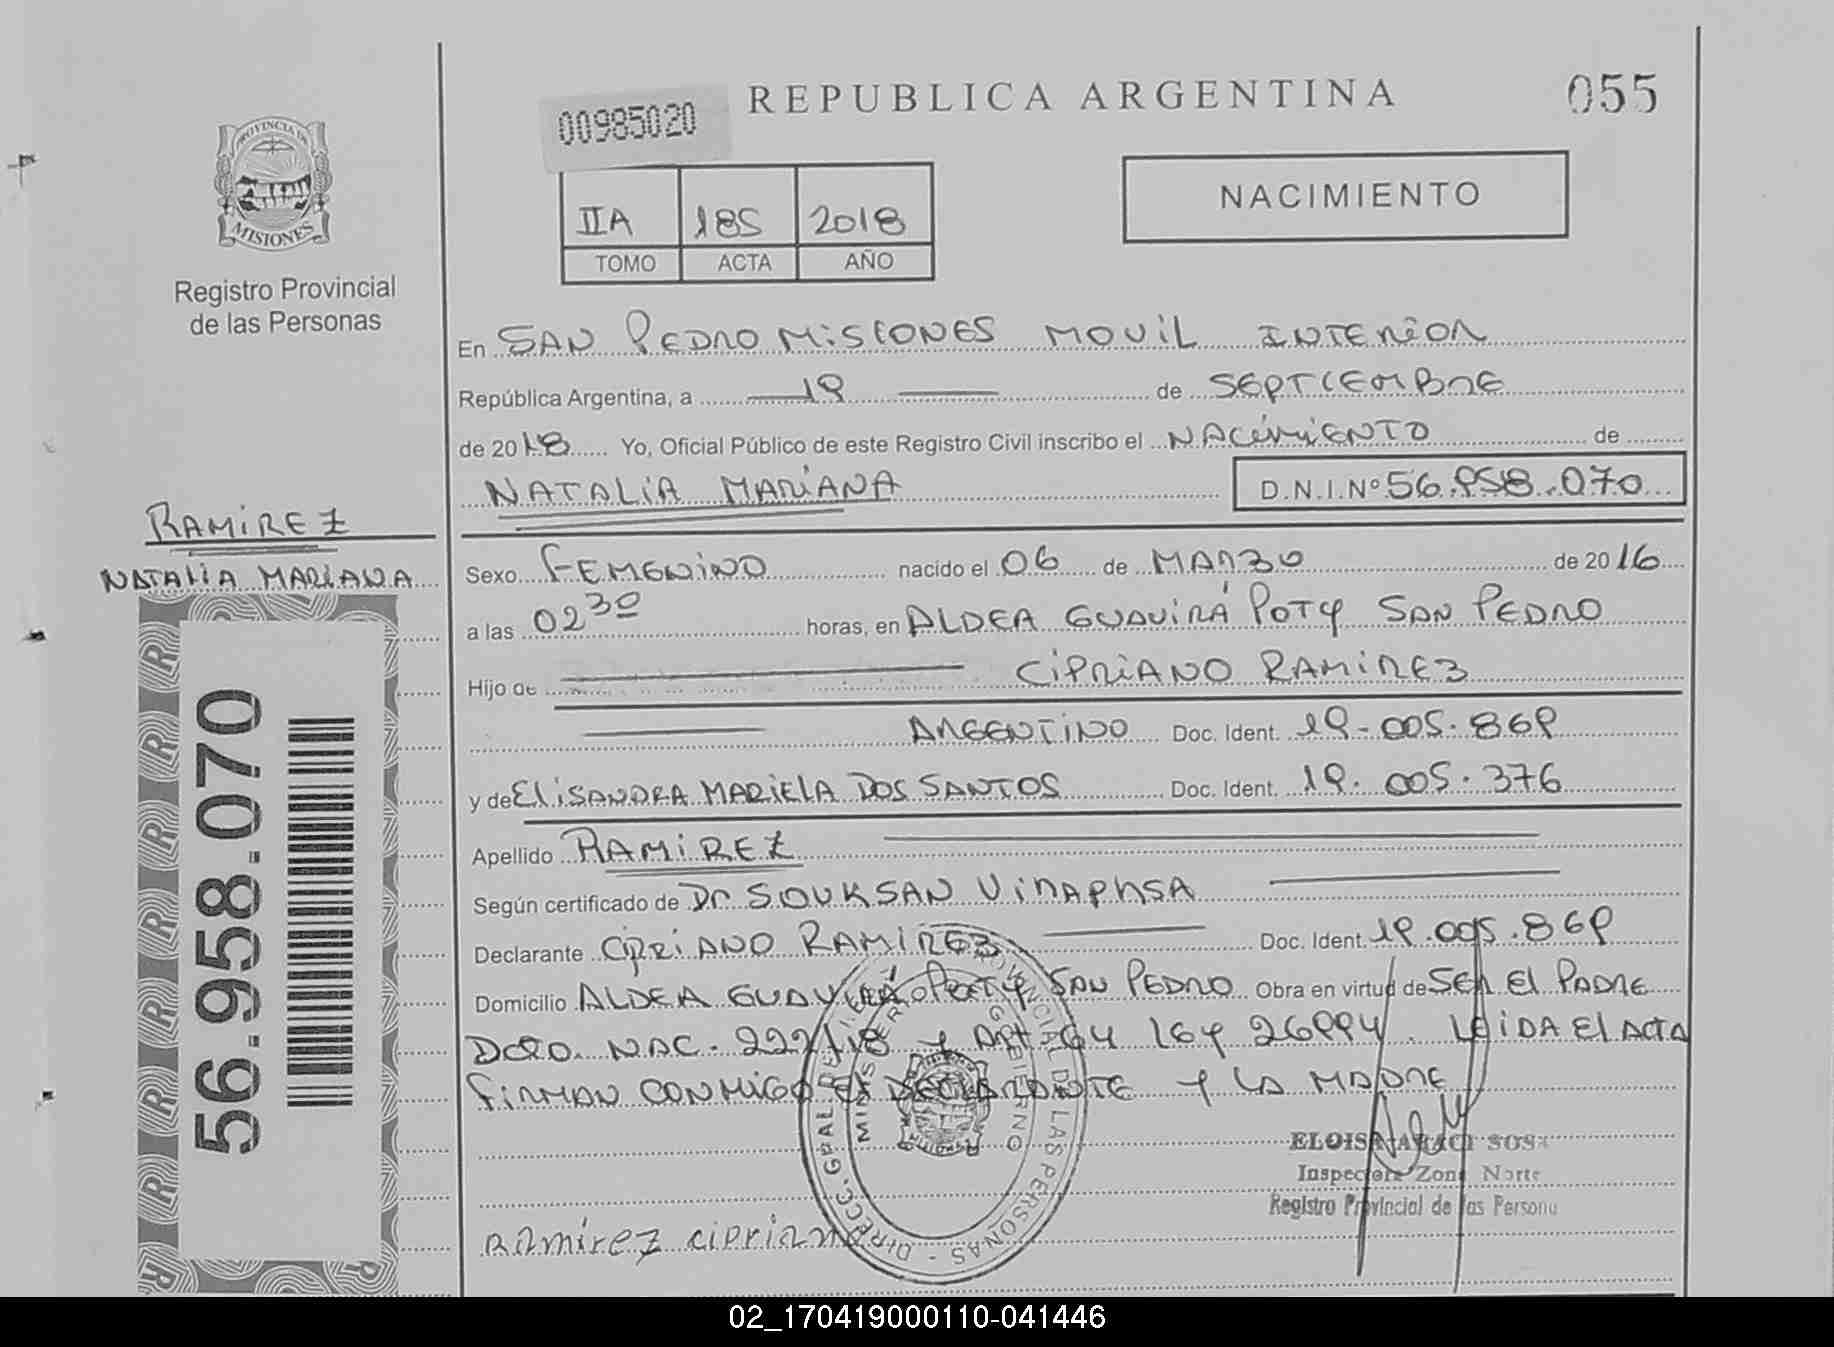 REPUBLICA ARGENTINA
055
00985020
PROVINCIA DE
MISIONES
Registro Provincial
de las Personas
IIA 185 2018
TOMO ACTA AÑO
NACIMIENTO
En SAN PEDRO MISIONES MOVIL INTERIOR
República Argentina, a 19 de SEPTIEMBRE
de 2018 Yo, Oficial Público de este Registro Civil inscribo el NACIMIENTO de
NATALIA MARIANA
D.N.I.Nº 56.958.070
RAMIREZ
NATALIA MARIANA
56.958.070
Sexo FEMENINO nacido el 06 de MARZO de 2016
a las 02 30 horas, en ALDEA GUAVIRÁ POTY SAN PEDRO
Hijo de CIPRIANO RAMIREZ
ARGENTINO Doc. Ident. 19-005.869
y de ELISANDRA MARIELA DOS SANTOS Doc. Ident. 19.005.376
Apellido RAMIREZ
Según certificado de Dr SOUKSAN VINAPHSA
Declarante CIPRIANO RAMIREZ Doc. Ident. 19.005.869
Domicilio ALDEA GUAVIRÁ POTY SAN PEDRO Obra en virtud de SER El PADRE
DCTO. NAC. 222/18 y Art 64 ley 26994. LEIDA El ACTA
FIRMAN CONMIGO El DECLARANTE y LA MADRE
DIRECC. GRAL DE PROVINCIAL DE LAS PERSONAS
MINISTERIO GOBIERNO
ELOISA ARACI SOSA
Inspectora Zona Norte
Registro Provincial de las Persona
Ramírez cipriano
02_170419000110-041446